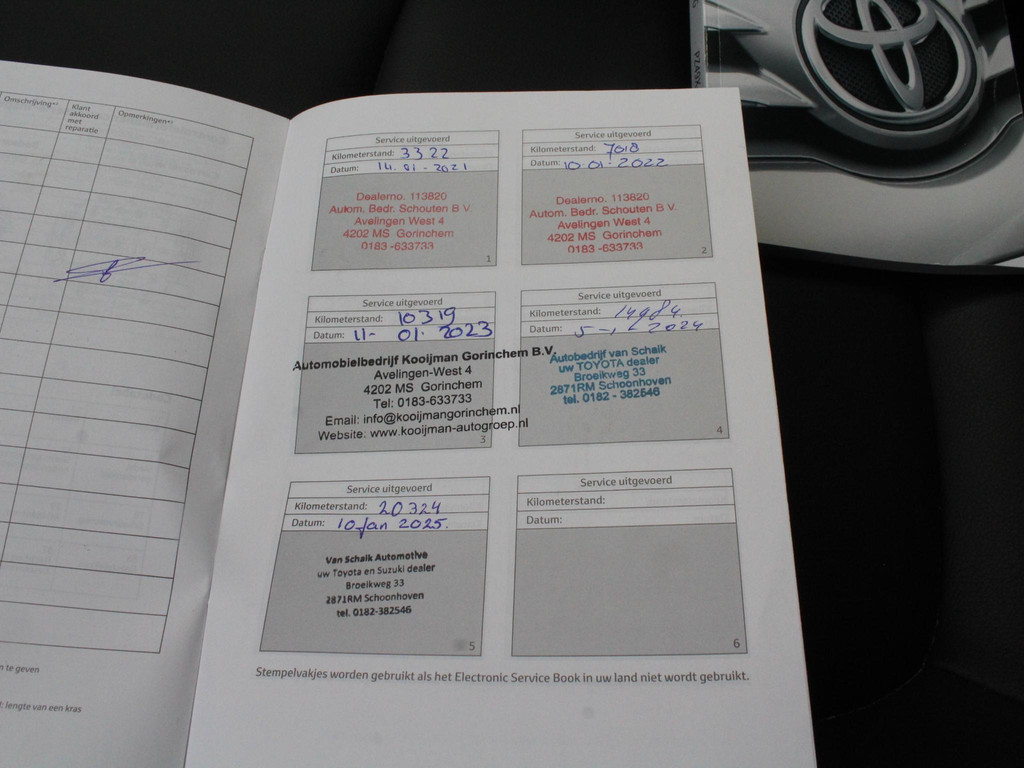 Omschrijving*²
Klant
akkoord
met
reparatie
Opmerkingen*³
n te geven
: lengte van een kras
Service uitgevoerd
Kilometerstand: 3322
Datum: 14-01-2021
Dealerno. 113820
Autom. Bedr. Schouten B.V.
Avelingen West 4
4202 MS Gorinchem
0183-633733
1
Service uitgevoerd
Kilometerstand: 7018
Datum: 10-01-2022
Dealerno. 113820
Autom. Bedr. Schouten B.V.
Avelingen West 4
4202 MS Gorinchem
0183-633733
2
Service uitgevoerd
Kilometerstand: 10319
Datum: 11-01-2023
Automobielbedrijf Kooijman Gorinchem B.V.
Avelingen-West 4
4202 MS Gorinchem
Tel: 0183-633733
Email: info@kooijmangorinchem.nl
Website: www.kooijman-autogroep.nl
3
Service uitgevoerd
Kilometerstand: 14984
Datum: 5-1-2024
Autobedrijf van Schaik
uw TOYOTA dealer
Broeikweg 33
2871RM Schoonhoven
tel. 0182 - 382546
4
Service uitgevoerd
Kilometerstand: 20324
Datum: 10 Jan 2025.
Van Schaik Automotive
uw Toyota en Suzuki dealer
Broeikweg 33
2871RM Schoonhoven
tel. 0182-382546
5
Service uitgevoerd
Kilometerstand:
Datum:
6
Stempelvakjes worden gebruikt als het Electronic Service Book in uw land niet wordt gebruikt.